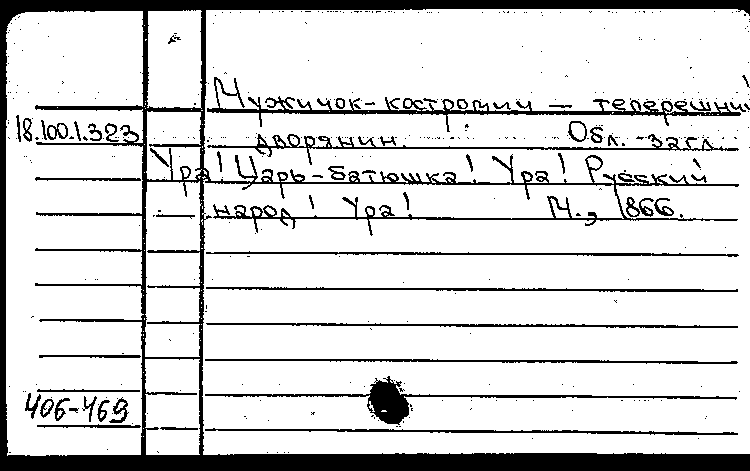 Мужичок-костромич — теперешний
18.100.1.323 дворянин. Обл. загл.
Ура! Царь-батюшка! Ура! Русский
народ! Ура! М., 1866.
406-469